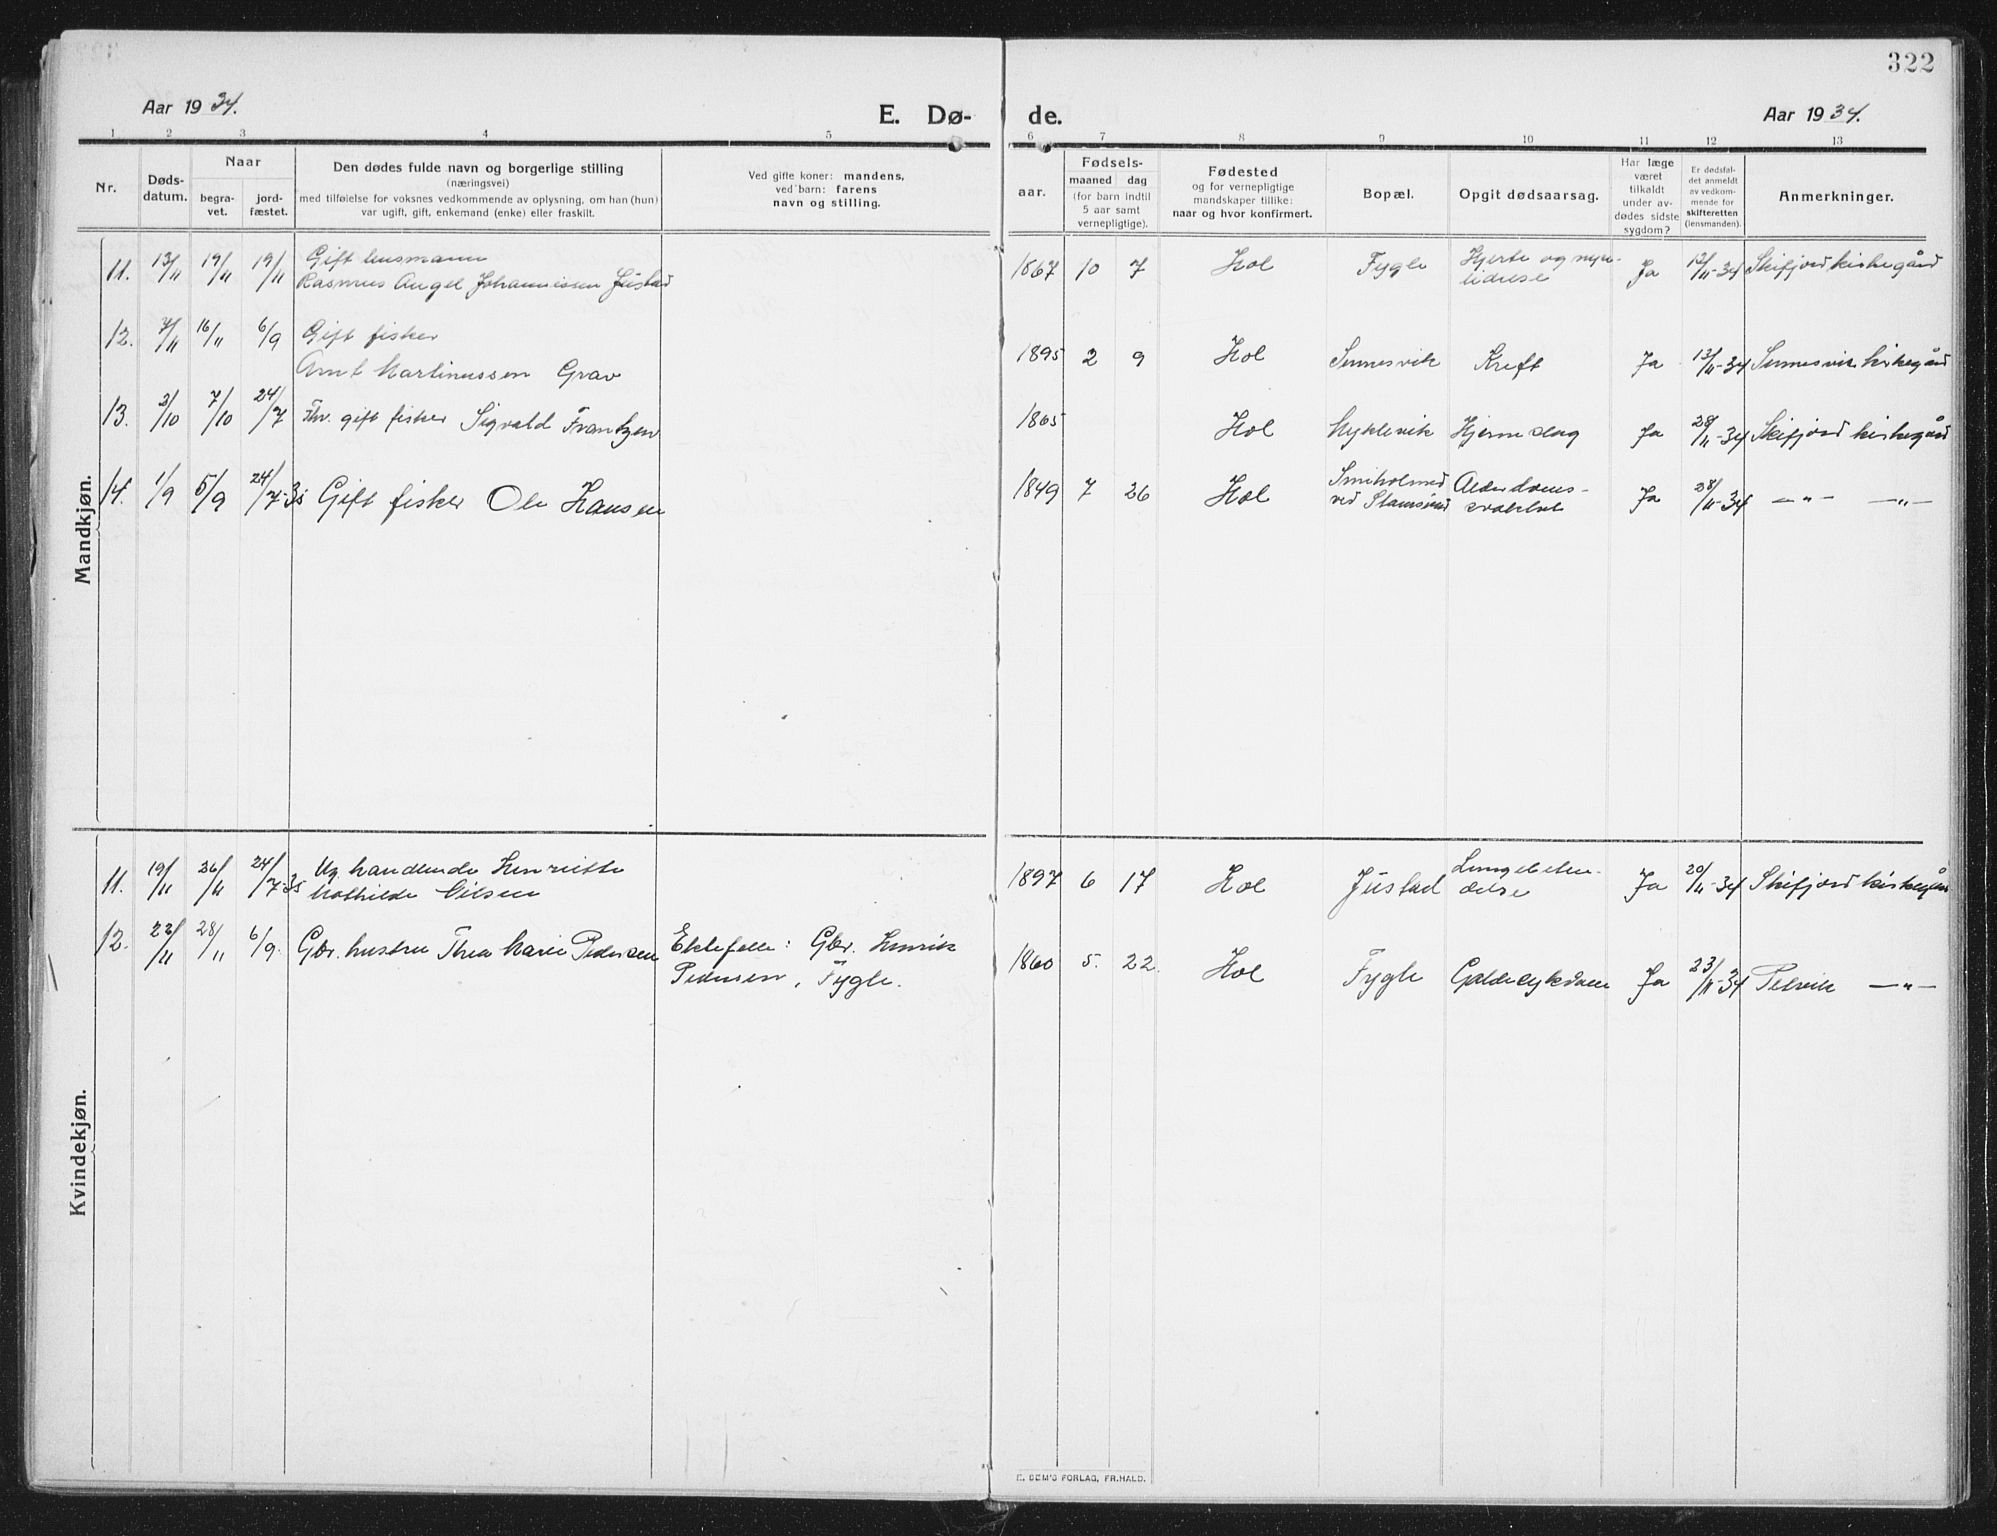 322
Aar 1934.
E. Dø-
de.
Aar 1934.
1 2 3 4 5 6 7 8 9 10 11 12 13
Nr.
Døds-
datum.
Naar
begra-
vet.
jord-
fæstet.
Den dødes fulde navn og borgerlige stilling
(næringsvei)
med tilføielse for voksnes vedkommende av oplysning, om han (hun)
var ugift, gift, enkemand (enke) eller fraskilt.
Ved gifte koner: mandens,
ved barn: farens
navn og stilling.
Fødsels-
aar.
maaned dag
(for barn indtil
5 aar samt
vernepligtige).
Fødested
og for vernepligtige
mandskaper tillike:
naar og hvor konfirmert.
Bopæl.
Opgit dødsaarsag.
Har læge
været
tilkaldt
under av-
dødes sidste
sygdom?
Er dødsfal-
det anmeldt
av vedkom-
mende for
skifteretten
(lensmanden).
Anmerkninger.
Mandkjøn.
11. 13/11 19/11 19/11 Gift
Rasmus Angel Johannessen Justad
1867 10 7 Hol Fygle Hjerte og nyre-
lidelse
Ja 12/11-34 Skifjord kirkegård
12. 7/11 16/11 6/9 Gift fisker
Arnt Martinussen Grav
1895 2 9 Hol Sennesvik Kreft Ja 13/11-34 Sennesvik kirkegård
13. 2/10 7/10 24/7 Fhv. gift fisker Sigvald Frantzen
1865 Hol Myklevik Hjerneslag Ja 28/11-34 Skifjord kirkegård
14. 1/9 5/9 24/7-35 Gift fisker Ole Hansen
1849 7 26 Hol
ved Stamsund
Alderdoms-
svakhet
Ja 28/11-34 —„— —„—
Kvindekjøn.
11. 19/11 26/11 24/7-35 Ug. handlende Henriette
Mathilde Nilsen
1897 6 17 Hol Justad Lungebeten-
delse
Ja 20/11-34 Skifjord kirkegård
12. 22/11 28/11 6/9. Gbr. hustru Thea Marie Pedersen
Ektefelle: Gbr. Henrik
Pedersen, Fygle.
1860 5. 22. Hol Fygle Galdesykdom Ja 23/11-34 Petvik —„—
E. SEM'S FORLAG, FR.HALD.